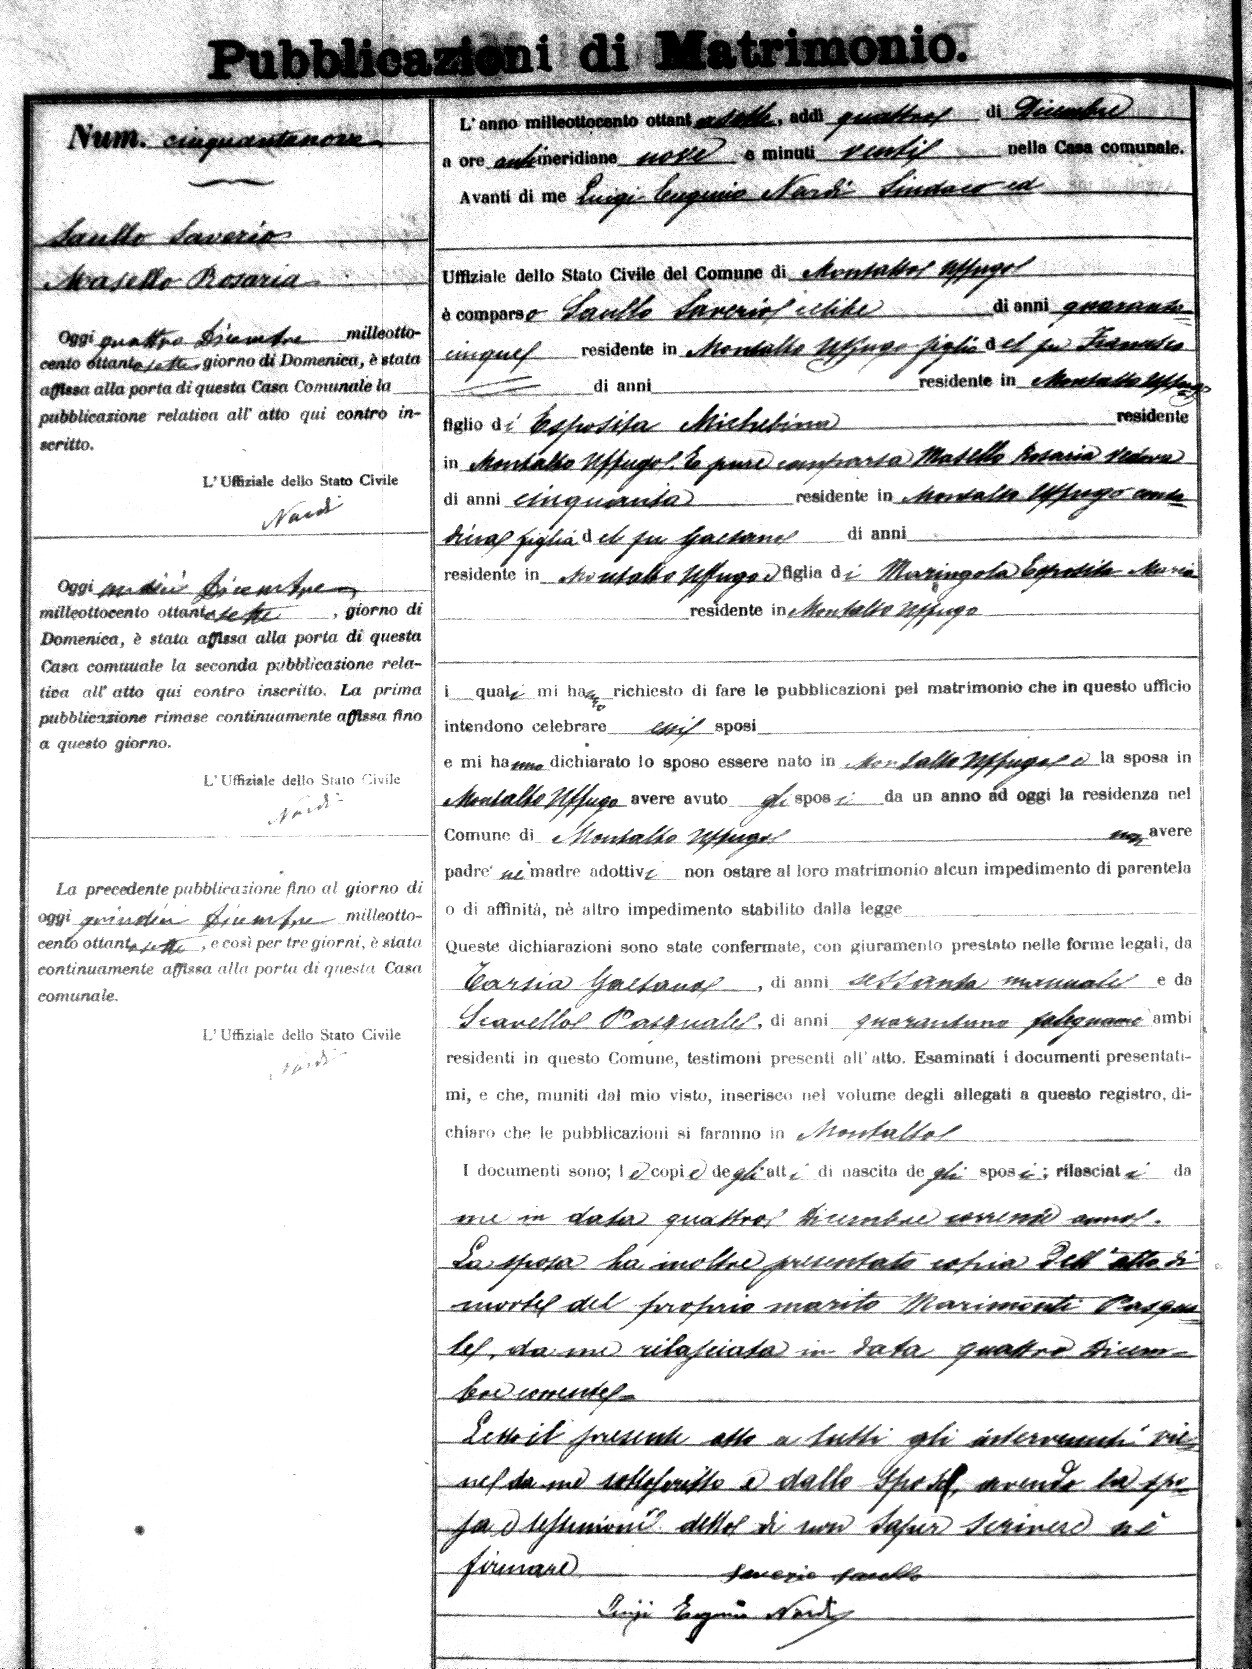 Pubblicazioni di Matrimonio.
Num. cinquantanove
Saullo Saverio
Masello Rosaria
Oggi quattro Dicembre milleotto-
cento ottantasette, giorno di Domenica, è stata
affissa alla porta di questa Casa Comunale la
pubblicazione relativa all' atto qui contro in-
scritto.
L' Uffiziale dello Stato Civile
Nardi
Oggi undici Dicembre
milleottocento ottantasette, giorno di
Domenica, è stata affissa alla porta di questa
Casa comunale la seconda pubblicazione rela-
tiva all' atto qui contro inscritto. La prima
pubblicazione rimase continuamente affissa fino
a questo giorno.
L' Uffiziale dello Stato Civile
Nardi
La precedente pubblicazione fino al giorno di
oggi quindici Dicembre milleotto-
cento ottantasette, e così per tre giorni, è stata
continuamente affissa alla porta di questa Casa
comunale.
L' Uffiziale dello Stato Civile
Nardi
L' anno milleottocento ottantasette, addì quattro di Dicembre
a ore antimeridiane nove e minuti venti nella Casa comunale.
Avanti di me Luigi Eugenio Nardi Sindaco ed
Uffiziale dello Stato Civile del Comune di Montalto Uffugo
è comparso Saullo Saverio celibe di anni quaranta=
cinque residente in Montalto Uffugo figlio del fu Francesco
di anni residente in Montalto Uffugo
figlio di Esposita Michelina residente
in Montalto Uffugo. E pure comparsa Masello Rosaria vedova
di anni cinquanta residente in Montalto Uffugo conta=
dina figlia del fu Gaetano di anni
residente in Montalto Uffugo e figlia di Maringola Esposita Maria
residente in Montalto Uffugo
i quali mi hanno richiesto di fare le pubblicazioni pel matrimonio che in questo ufficio
intendono celebrare essi sposi
e mi hanno dichiarato lo sposo essere nato in Montalto Uffugo e la sposa in
Montalto Uffugo avere avuto gli sposi da un anno ad oggi la residenza nel
Comune di Montalto Uffugo non avere
padre nè madre adottivi non ostare al loro matrimonio alcun impedimento di parentela
o di affinità, nè altro impedimento stabilito dalla legge
Queste dichiarazioni sono state confermate, con giuramento prestato nelle forme legali, da
Tarsia Gaetano, di anni sessanta manuale e da
Scavello Pasquale, di anni quarantuno falegname ambi
residenti in questo Comune, testimoni presenti all' atto. Esaminati i documenti presentati-
mi, e che, muniti dal mio visto, inserisco nel volume degli allegati a questo registro, di-
chiaro che le pubblicazioni si faranno in Montalto
I documenti sono; le copie degli atti di nascita degli sposi; rilasciati da
me in data quattro Dicembre corrente anno.
La sposa ha inoltre presentato copia dell' atto di
morte del proprio marito Marimonti Pasqua=
le, da me rilasciata in data quattro Dicem=
bre corrente=
Letto il presente atto a tutti gli intervenuti vie=
ne da me sottoscritto e dallo sposo, avendo la spo=
sa e testimoni detto di non saper scrivere nè
firmare
Saverio Saullo
Luigi Eugenio Nardi